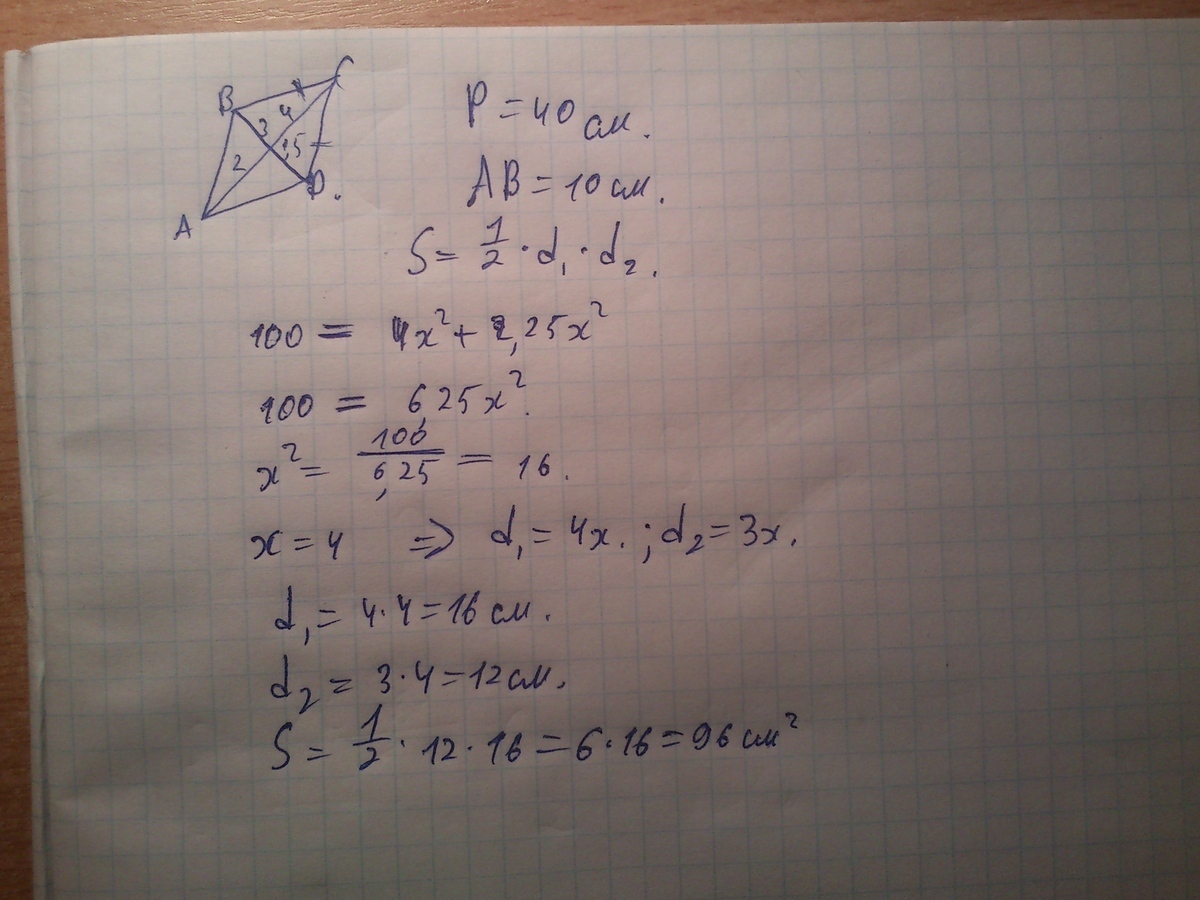 B C
3 4
2 1,5
A D.
P = 40 см.
AB = 10 см.
S = 1/2 · d₁ · d₂.
100 = 4x² + 2,25x²
100 = 6,25x².
x² = 100/6,25 = 16.
x = 4 ⇒ d₁ = 4x. ; d₂ = 3x.
d₁ = 4·4 = 16 см.
d₂ = 3·4 = 12 см.
S = 1/2 · 12 · 16 = 6·16 = 96 см²